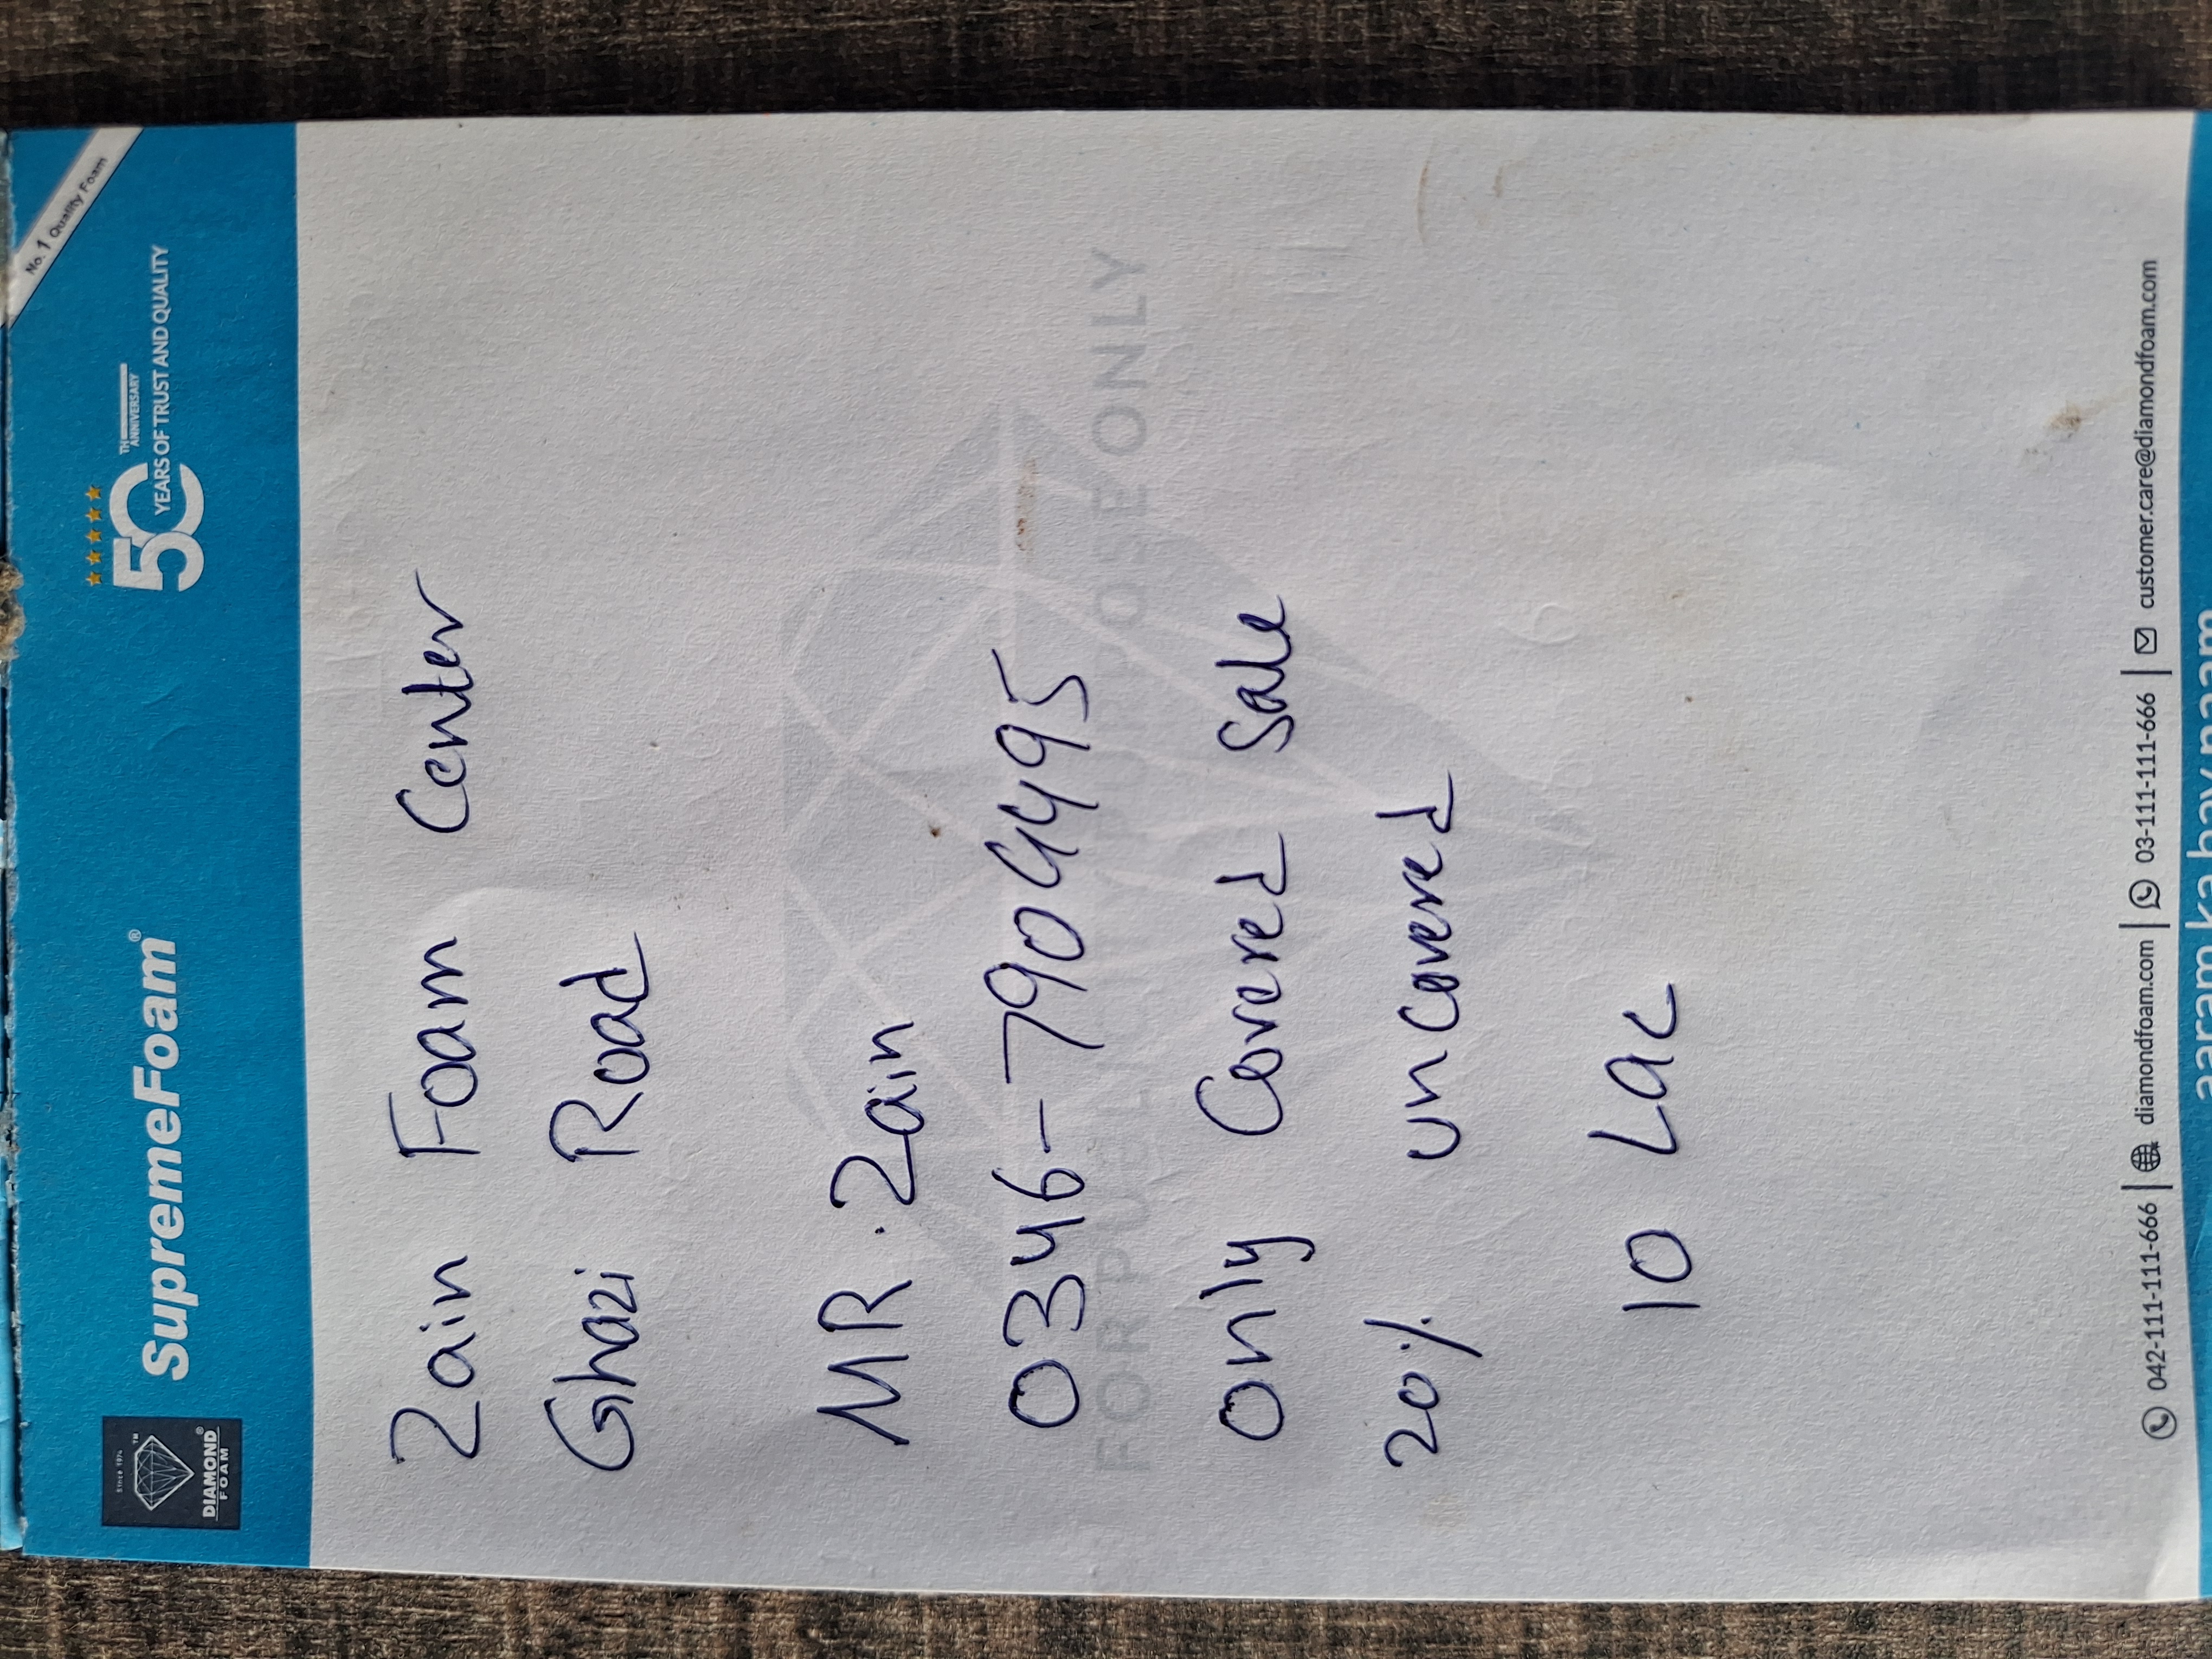 since 1974
TM
DIAMOND®
FOAM
SupremeFoam®
50TH ANNIVERSARY
YEARS OF TRUST AND QUALITY
No. 1 Quality Foam
Zain Foam Center
Ghazi Road
MR. Zain
0346-7904495
FOR PU
POSE ONLY
Only Covered Sale
20% uncovered
10 Lac
042-111-111-666 | diamondfoam.com | 03-111-111-666 | customer.care@diamondfoam.com
aaram ka hay naam